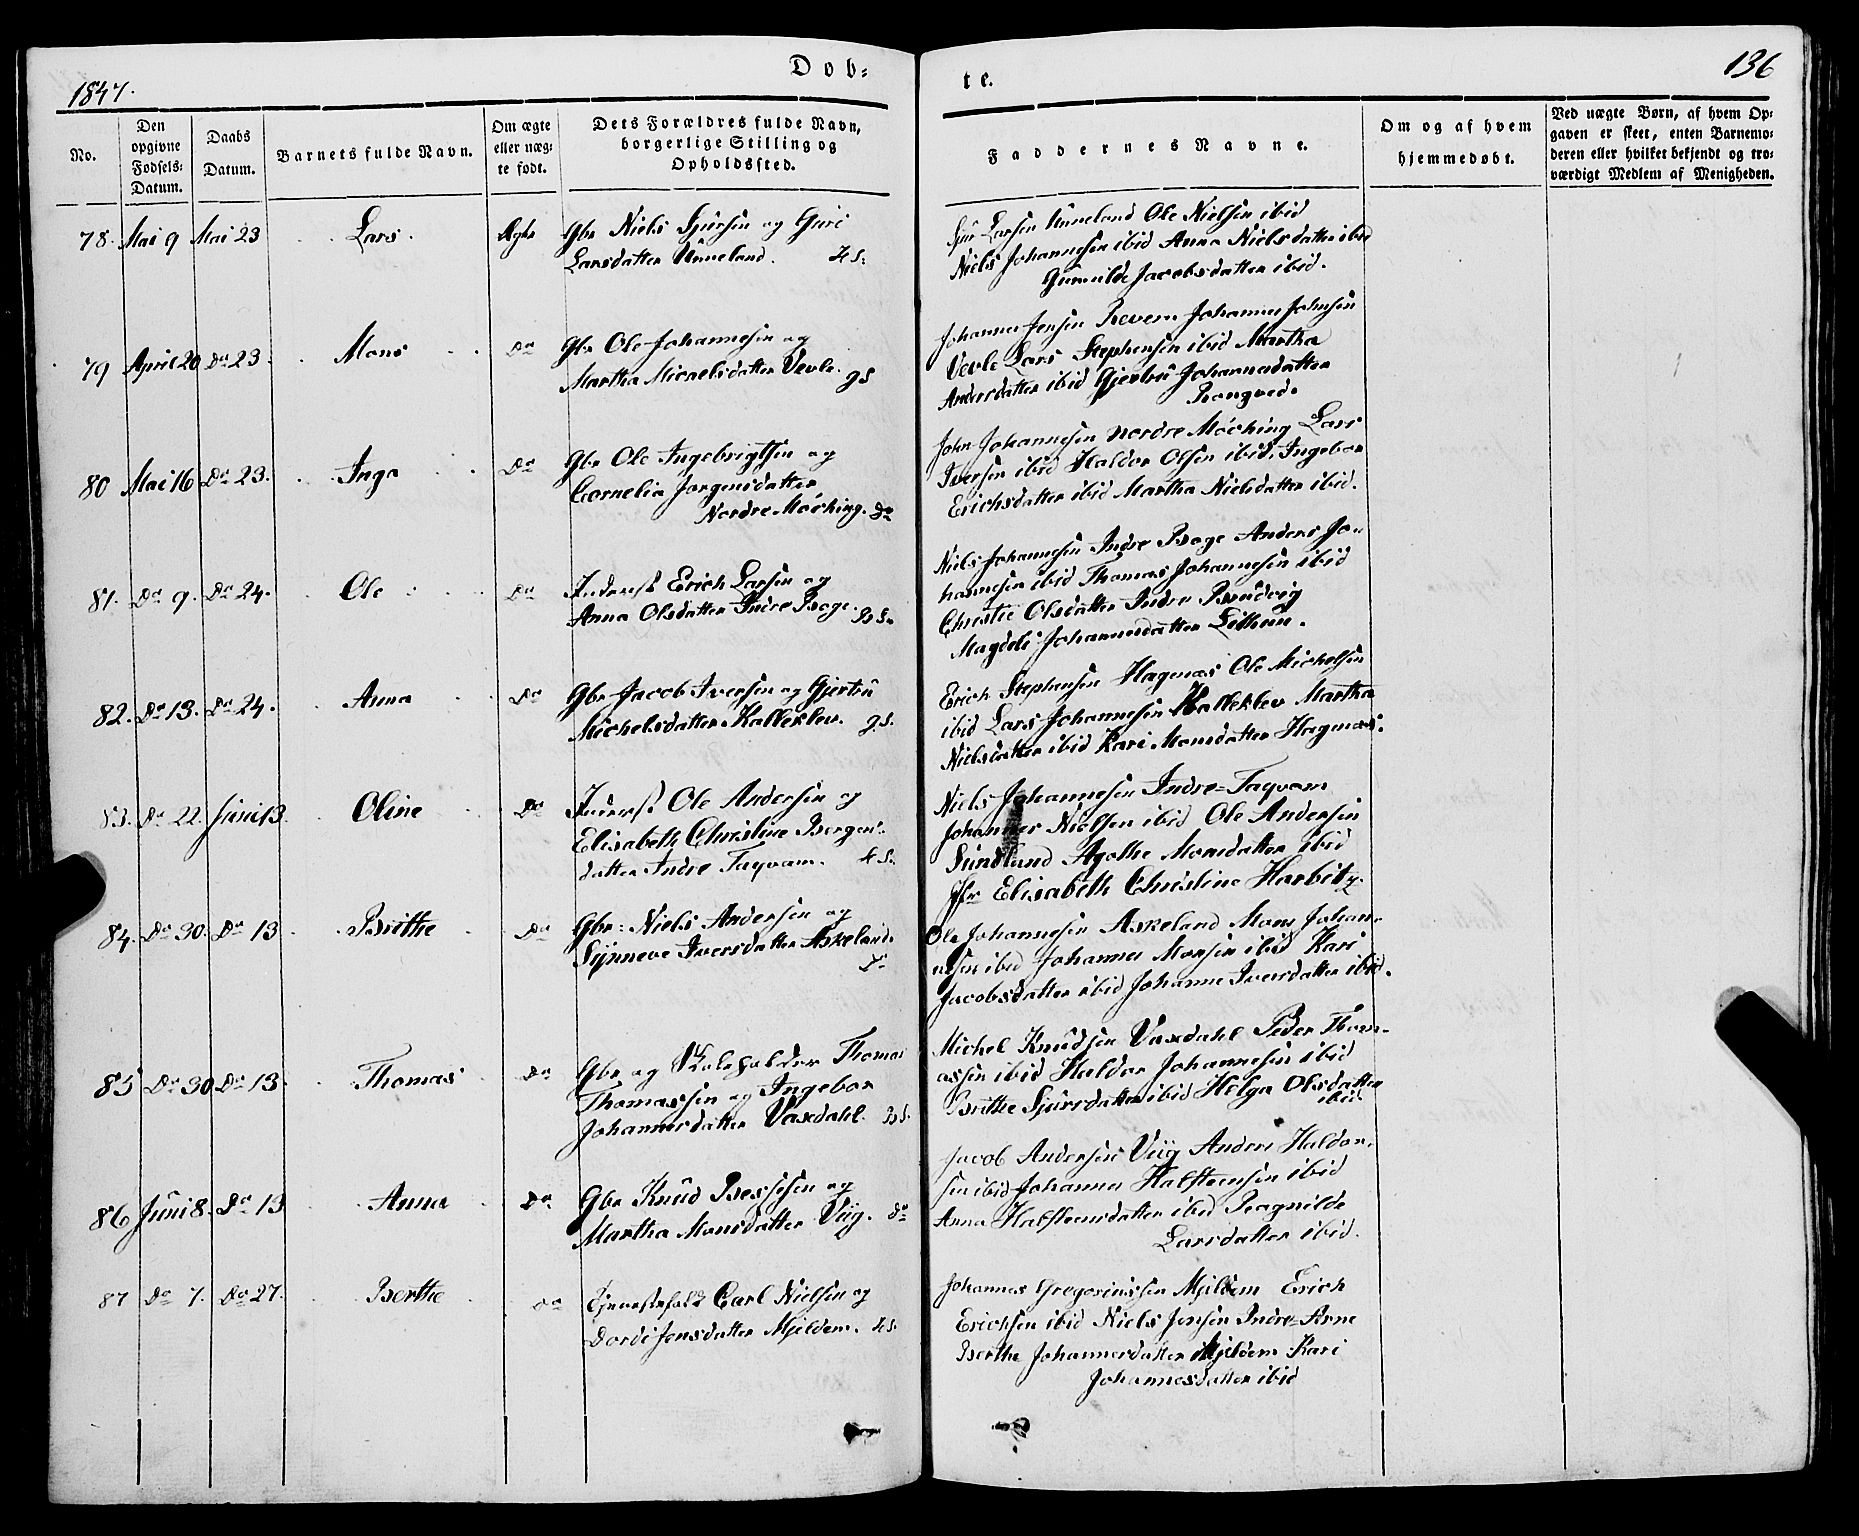 1847.
Døb=
te.
136
No.
Den
opgivne
Fødsels=
Datum.
Daabs
Datum.
Barnets fulde Navn.
Om ægte
eller uæg=
te født.
Dets Forældres fulde Navn,
borgerlige Stilling og
Opholdssted.
Faddernes Navne.
Om og af hvem
hjemmedøbt.
Ved uægte Børn, af hvem Op=
gaven er skeet, enten Barnemo=
deren eller hvilket bekjendt og tro=
værdigt Medlem af Menigheden.
78. Mai 9 Mai 23 Lars. Ægte
Gbr Niels Sjursen og Guri
Larsdatter Unneland.
Sjur Larsen Unneland Ole Nielsen ibid
Niels Johannesen ibid Anna Nielsdatter ibid
Gunnilde Jacobsdatter ibid.
79 April 20 Do 23. Mons Do
Gbr Ole Johannesen og
Martha Micaelsdatter Vevle. 9 S
Johannes Jensen Revem Johannes Johnsen
Vevle Lars Stephensen ibid Martha
Andersdatter ibid Gjertru Johannesdatter
Rongved.
80 Mai 16 Do 23. Inga Do
Gbr Ole Ingebrigtsen og
Cornelia Jorgensdatter
Nordre Mövking. Do
John Johannesen nordre Mövking Lars
Iversen ibid Haldor Olsen ibid, Ingebor
Erichsdatter ibid Martha Nielsdatter ibid.
81. Do 9. Do 24. Ole Do
Inderst Erich Larsen og
Anna Olsdatter Indre Boge.
Niels Johannesen Indre Boge Anders Jo=
hannesen ibid Thomas Johannesen ibid
Christie Olsdatter Indre Bruvig
Magdeli Johannesdatter
82. Do 13. Do 24. Anna Do
Gbr Jacob Iversen og Gjertru
Michelsdatter Kalleklev. 9 S.
Erich Stephensen Hagenæs Ole Michelsen
ibid Lars Johannesen Kalleklev Martha
Nielsdatter ibid Kari Monsdatter Hagenæs.
83. Do 22. Juni 13. Oline Do
Inderst Ole Andersen og
Elisabeth Christine Bergens=
datter Indre Taqvam.
Niels Johannesen Indre=Taqvam
Johannes Nielsen ibid Ole Andersen
Sundland Agathe Monsdatter ibid
Jfr Elisabeth Christine Harbitz.
84. Do 30. Do 13 Brithe Do
Gbr: Niels Andersen og
Synneve Iversdatter Askeland.
Do
Ole Johannesen Askeland Mons Johan=
nesen ibid Johannes Monsen ibid Kari
Jacobsdatter ibid Johanne Iversdatter ibid.
85 Do 30 Do 13. Thomas Do
Gbr og Skoleholder Thomas
Thomassen og Ingebor
Johannesdatter Vaxdahl.
Michel Knudsen Vaxdahl Peder Thom=
assen ibid Haldor Johannesen ibid
Brithe Sjursdatter ibid Helga Olsdatter
ibid
86 Juni 8. Do 13 Anna Do
Gbr Knud Bessesen og
Martha Monsdatter Viig. Do
Jacob Andersen Viig Anders Haldor=
sen ibid Johannes Halsteensen ibid
Anna Halsteensdatter ibid Ragnilde
Larsdatter ibid.
87 Do 7. Do 27. Berthe Do
Tjenestefolk Carl Nielsen og
Dordi Jensdatter Mjeldem.
Johannes Gregoriussen Mjeldem Erich
Erichsen ibid Niels Jensen Indre=Arne
Berthe Johannesdatter Mjeldem Kari
Johannesdatter ibid